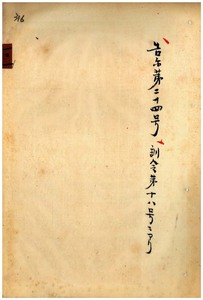 316
告示第二十四号 訓令第十八号ニアリ